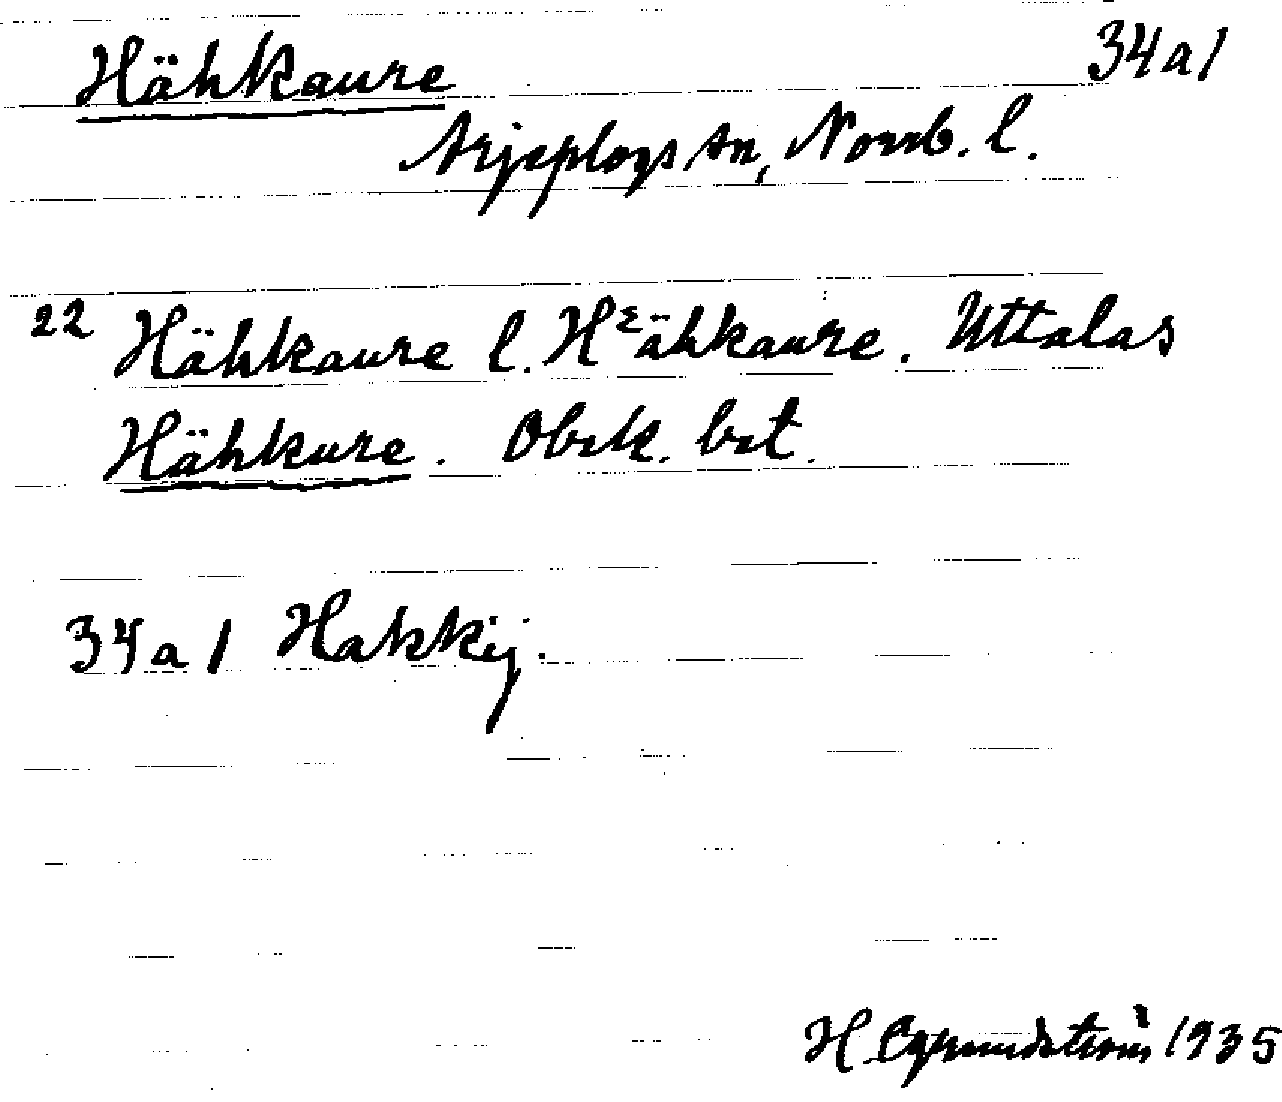 Hähkaure 34a1
Arjeplogs sn, Norrb. l.
22 Hähkaure l. Hᵋähkaure. Uttalas
Hähkure. Obek. bet.
34a1 Hakkij.
H. Grundström 1935